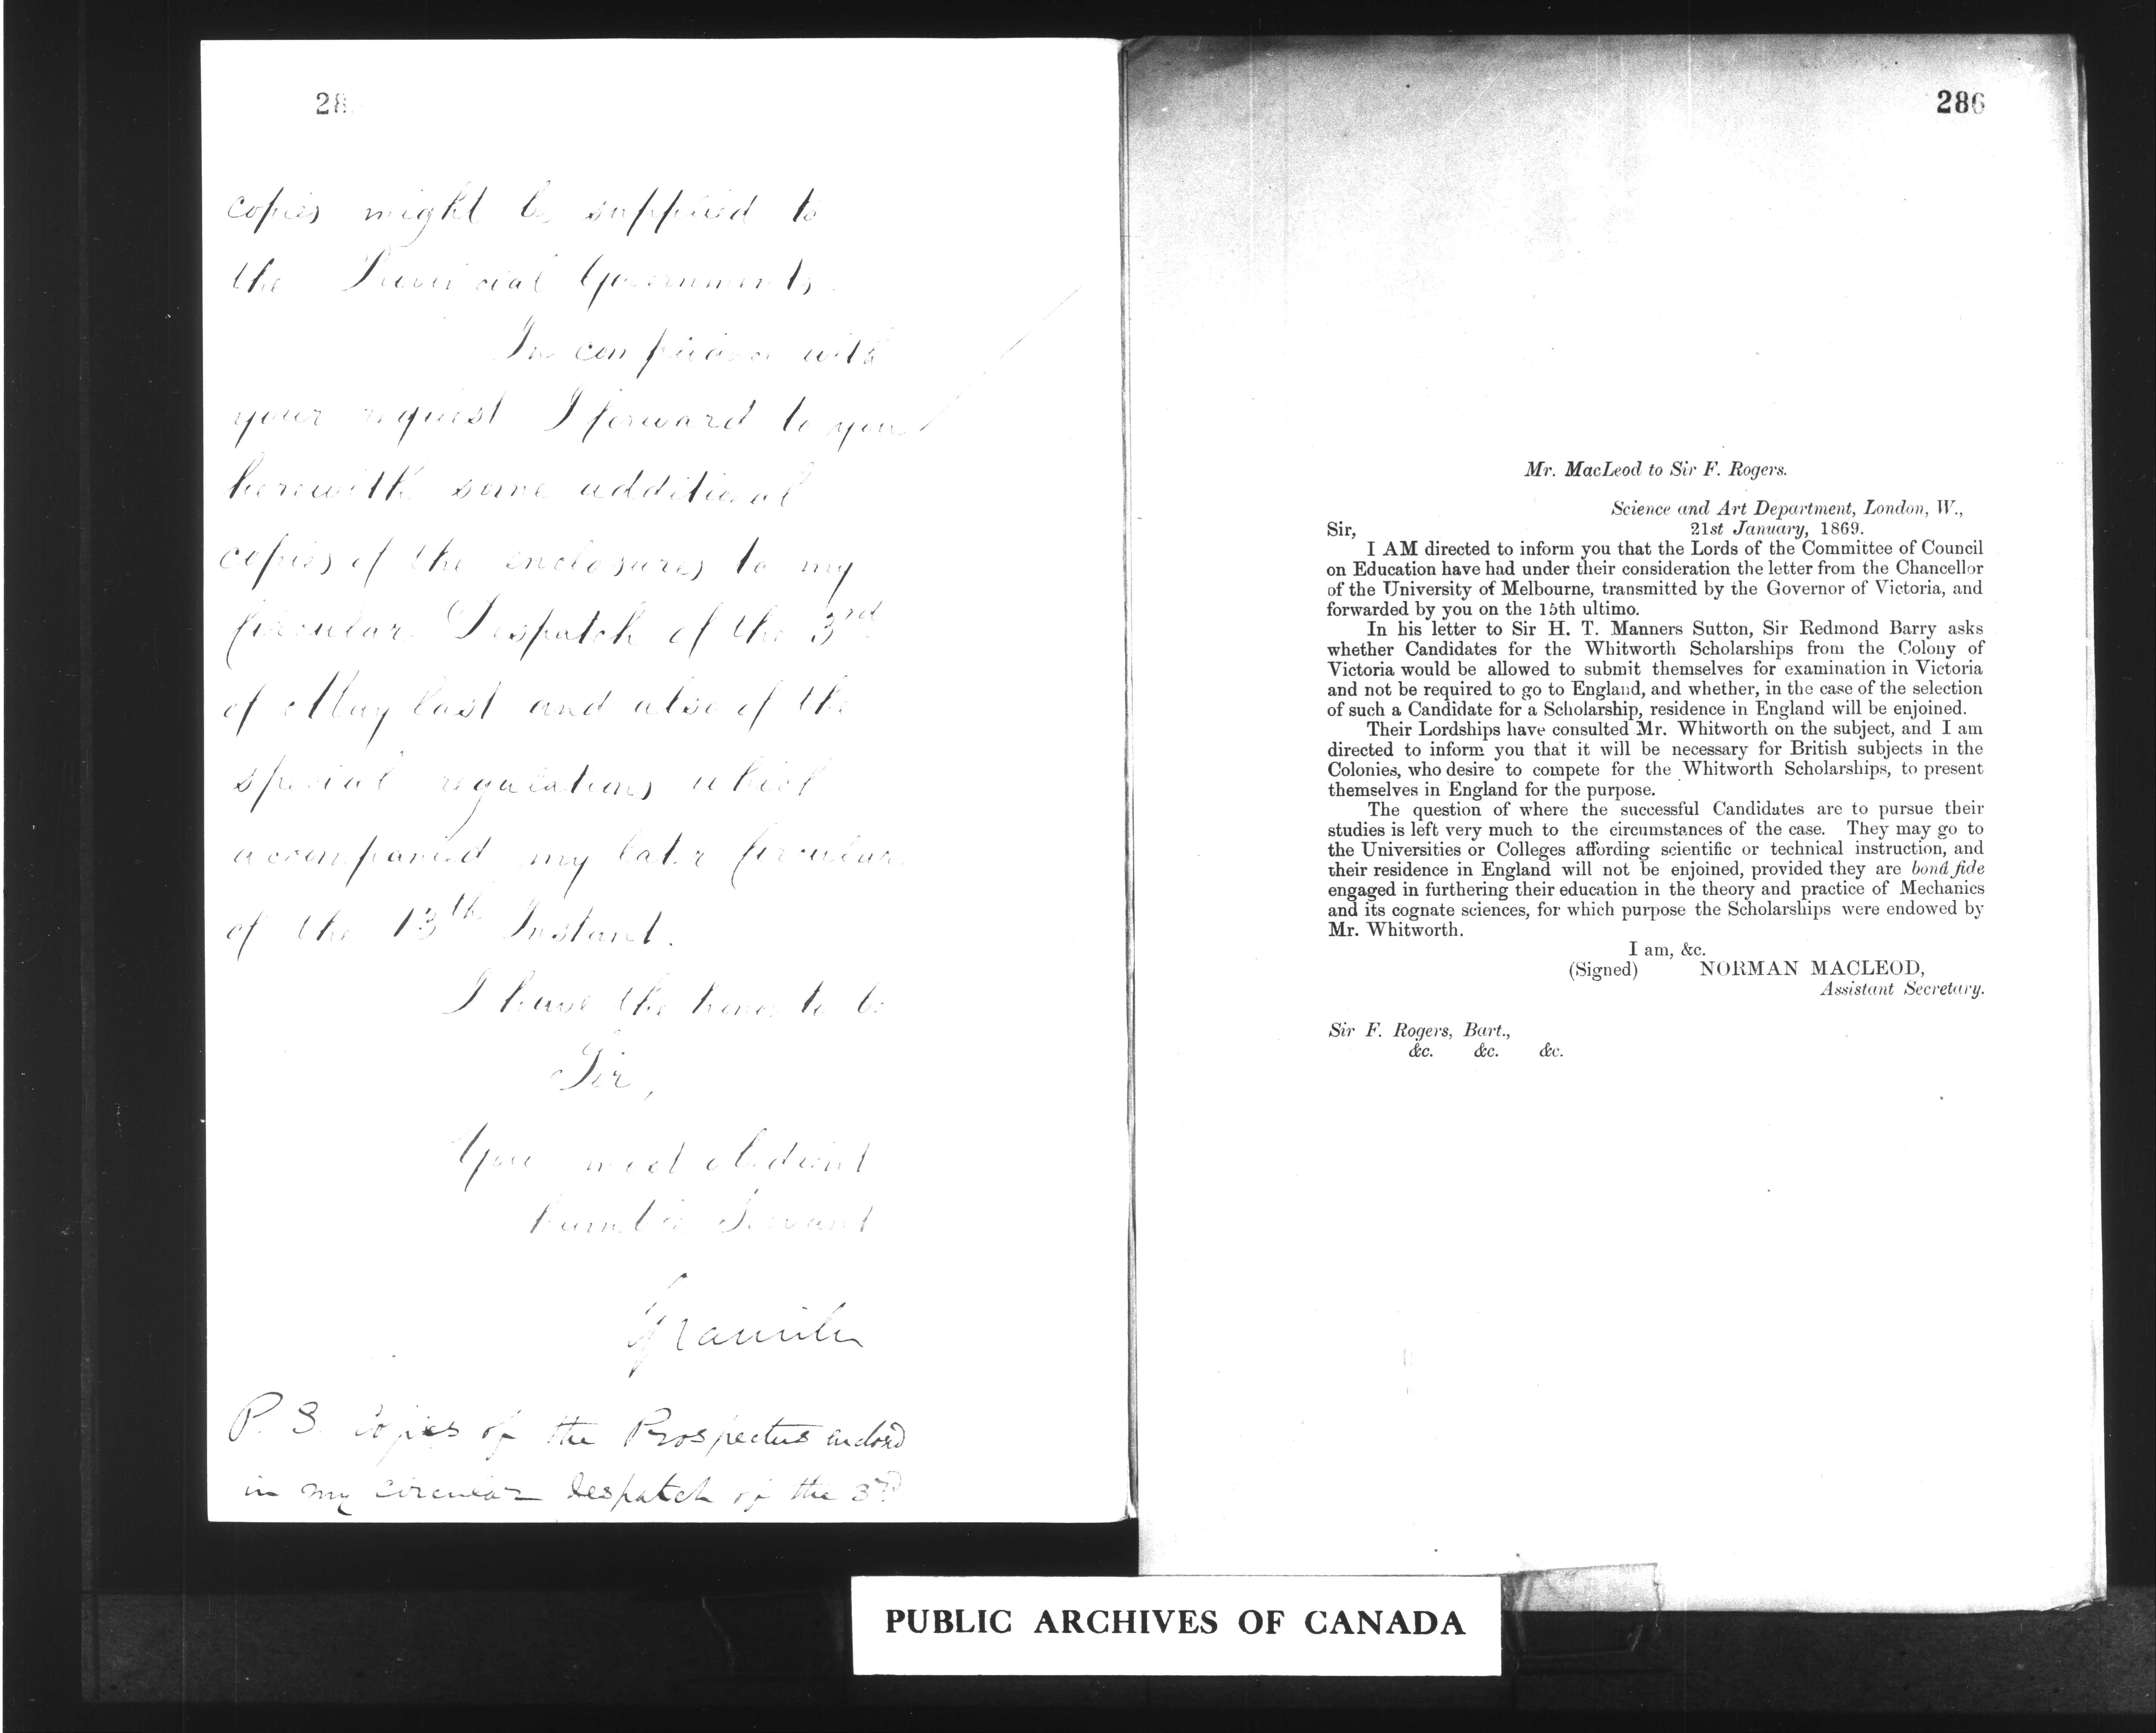 28
copies might be supplied to
the Provincial Governments.
In compliance with
your request I forward to you
herewith some additional
copies of the enclosures to my
Circular Despatch of the 3rd
of May last and also of the
special regulations which
accompanied my later Circular
of the 13th Instant.
I have the honor to be
Sir,
Your most obedient
humble Servant
Granville
P.S. Copies of the Prospectus enclosed
in my circular despatch of the 3rd
286
Mr. MacLeod to Sir F. Rogers.
Science and Art Department, London, W.,
Sir, 21st January, 1869.
I AM directed to inform you that the Lords of the Committee of Council
on Education have had under their consideration the letter from the Chancellor
of the University of Melbourne, transmitted by the Governor of Victoria, and
forwarded by you on the 15th ultimo.
In his letter to Sir H. T. Manners Sutton, Sir Redmond Barry asks
whether Candidates for the Whitworth Scholarships from the Colony of
Victoria would be allowed to submit themselves for examination in Victoria
and not be required to go to England, and whether, in the case of the selection
of such a Candidate for a Scholarship, residence in England will be enjoined.
Their Lordships have consulted Mr. Whitworth on the subject, and I am
directed to inform you that it will be necessary for British subjects in the
Colonies, who desire to compete for the Whitworth Scholarships, to present
themselves in England for the purpose.
The question of where the successful Candidates are to pursue their
studies is left very much to the circumstances of the case. They may go to
the Universities or Colleges affording scientific or technical instruction, and
their residence in England will not be enjoined, provided they are bonâ fide
engaged in furthering their education in the theory and practice of Mechanics
and its cognate sciences, for which purpose the Scholarships were endowed by
Mr. Whitworth.
I am, &c.
(Signed) NORMAN MACLEOD,
Assistant Secretary.
Sir F. Rogers, Bart.,
&c. &c. &c.
PUBLIC ARCHIVES OF CANADA